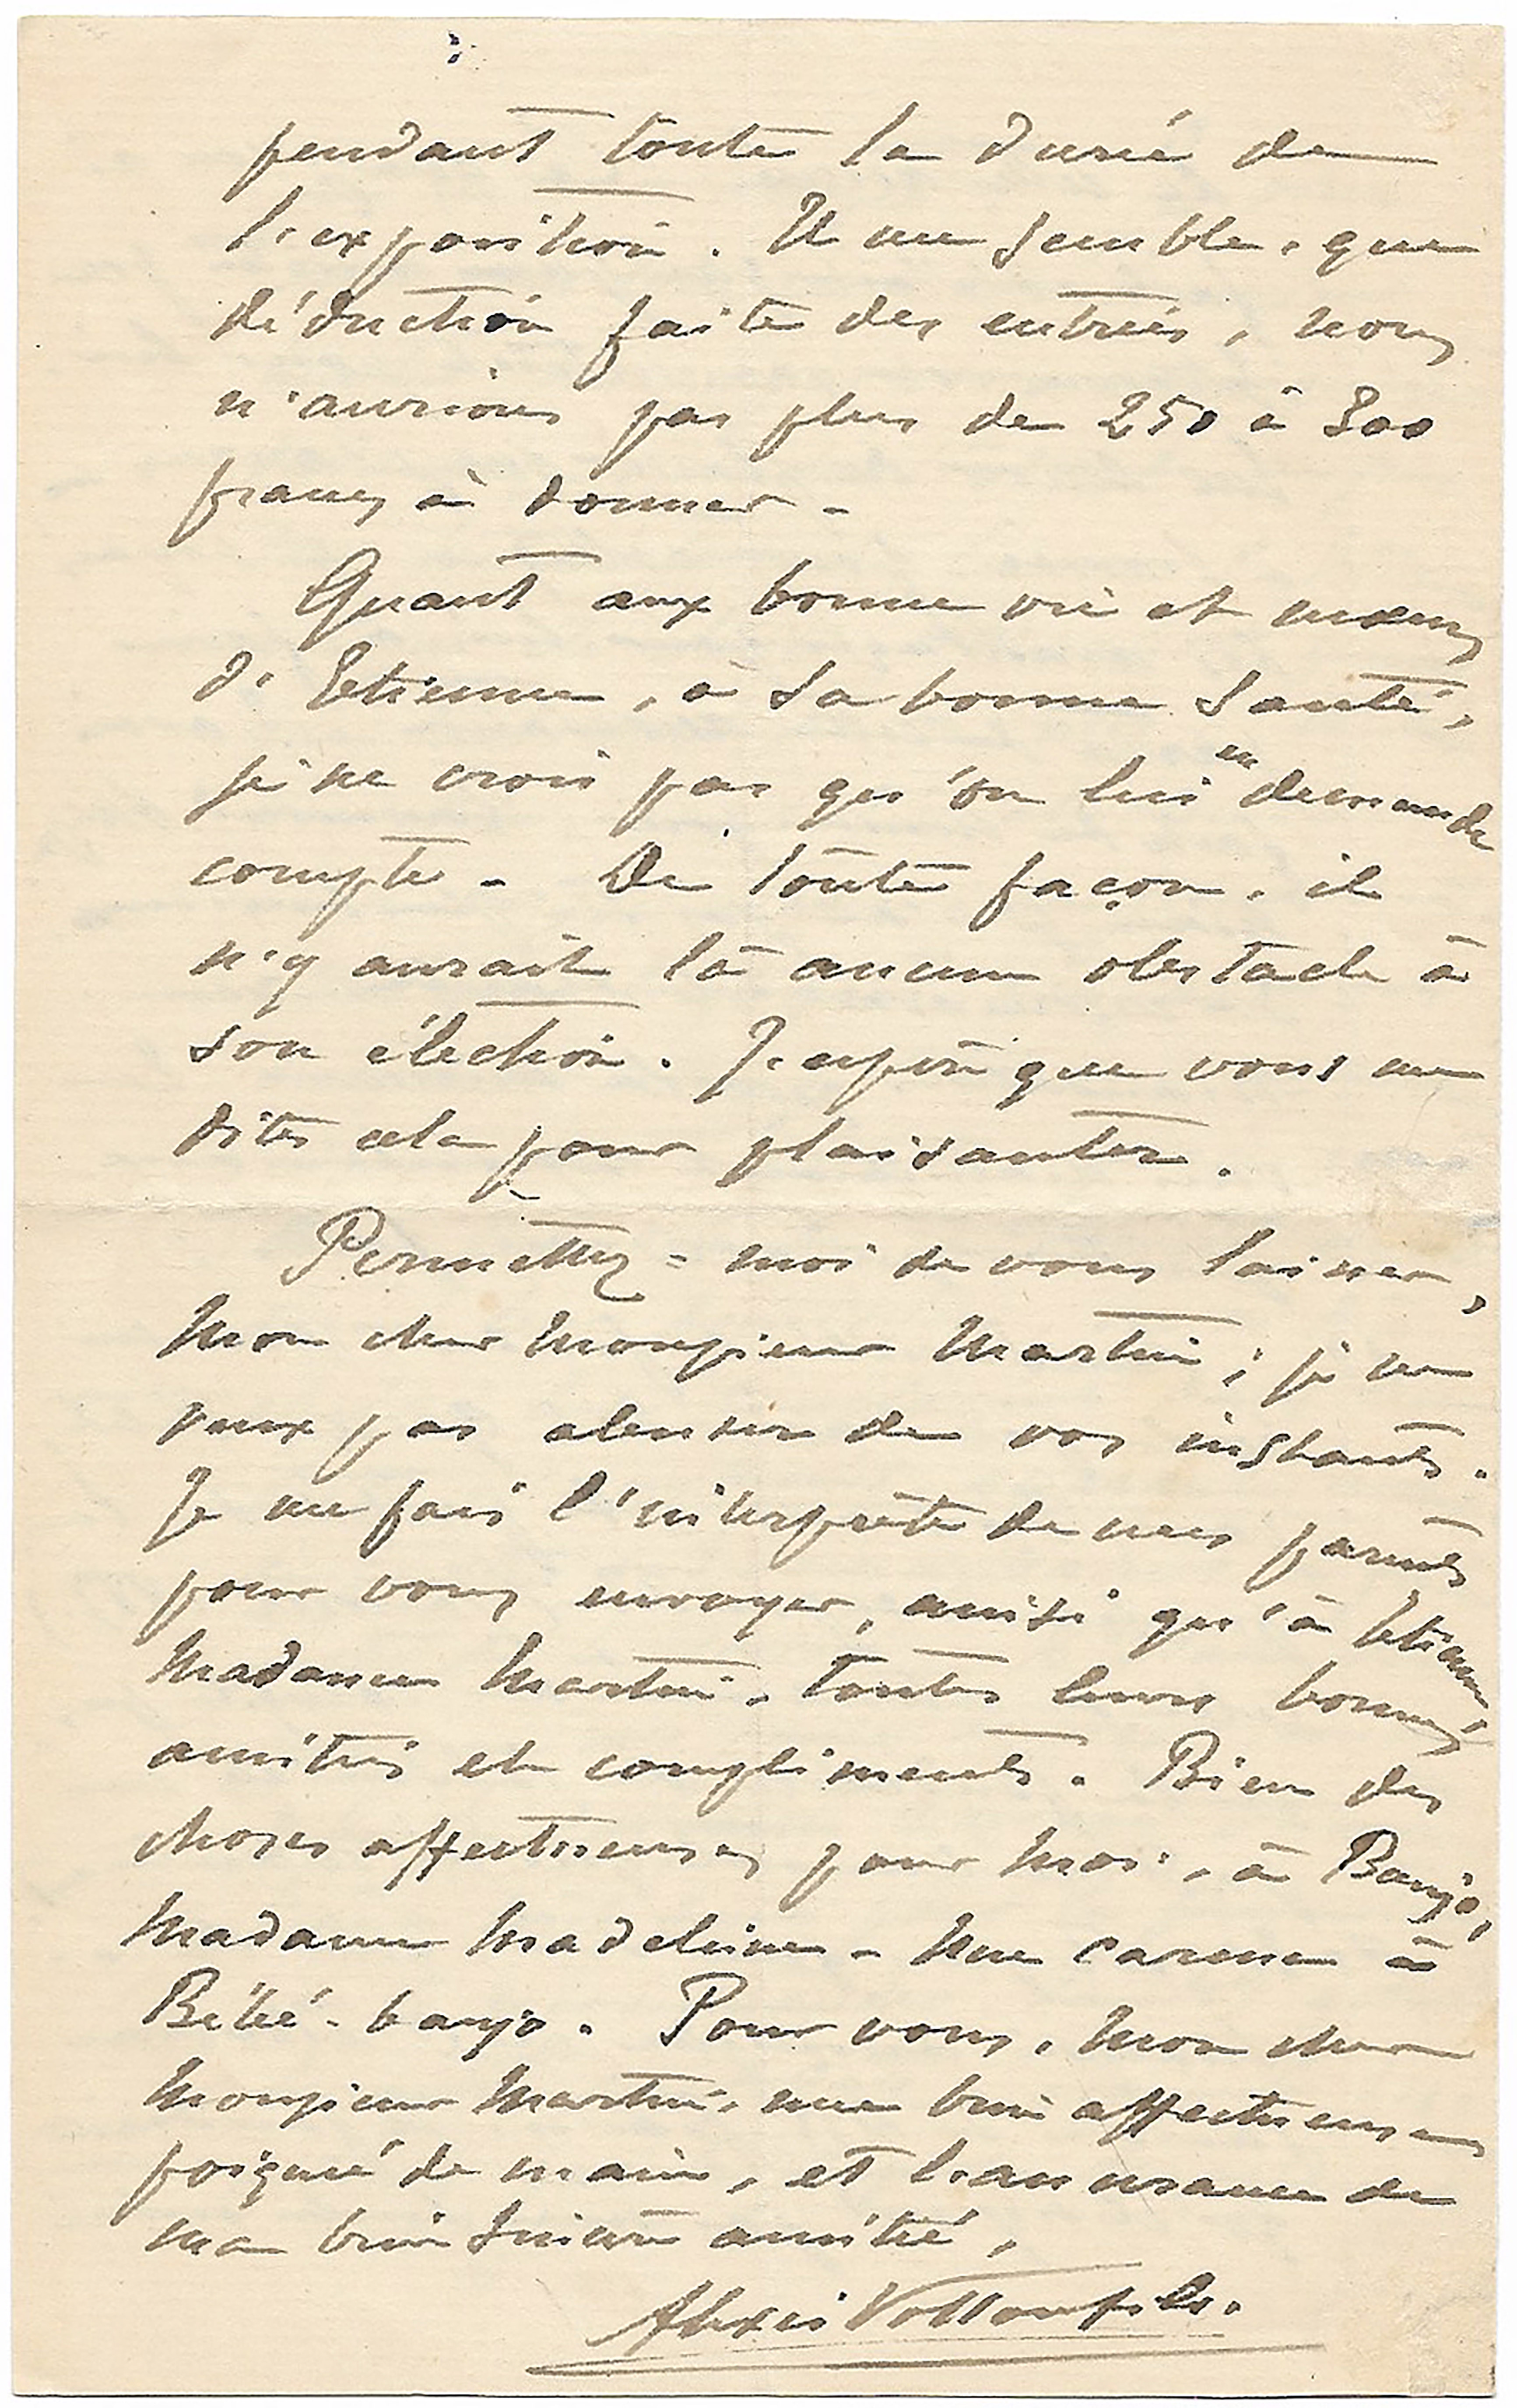 pendant toute la durée de
l'exposition. Il me semble, que
déduction faite des entrées, nous
n'aurions pas plus de 250 à 300
francs à donner -
Quant aux bonne vie et mœurs
d'Etienne, à sa bonne santé,
je ne crois pas qu'on lui en demande
compte - De toute façon, il
n'y aurait là aucun obstacle à
son élection. J'espère que vous me
dites cela pour plaisanter.
Permettez-moi de vous laisser,
mon cher Monsieur Martin ; je ne
veux pas abuser de vos instants.
Je me fais l'interprète de mes parents
pour vous envoyer, ainsi qu'à Etienne,
Madame Martin, toutes leurs bonnes
amitiés et compliments. Bien des
choses affectueuses pour moi, à Banjo,
Madame Madeleine - Une caresse à
Bébé-banjo. Pour vous, mon cher
Monsieur Martin, une bien affectueuse
poignée de main, et l'assurance de
ma bien sincère amitié,
Alexis Vollon fils.